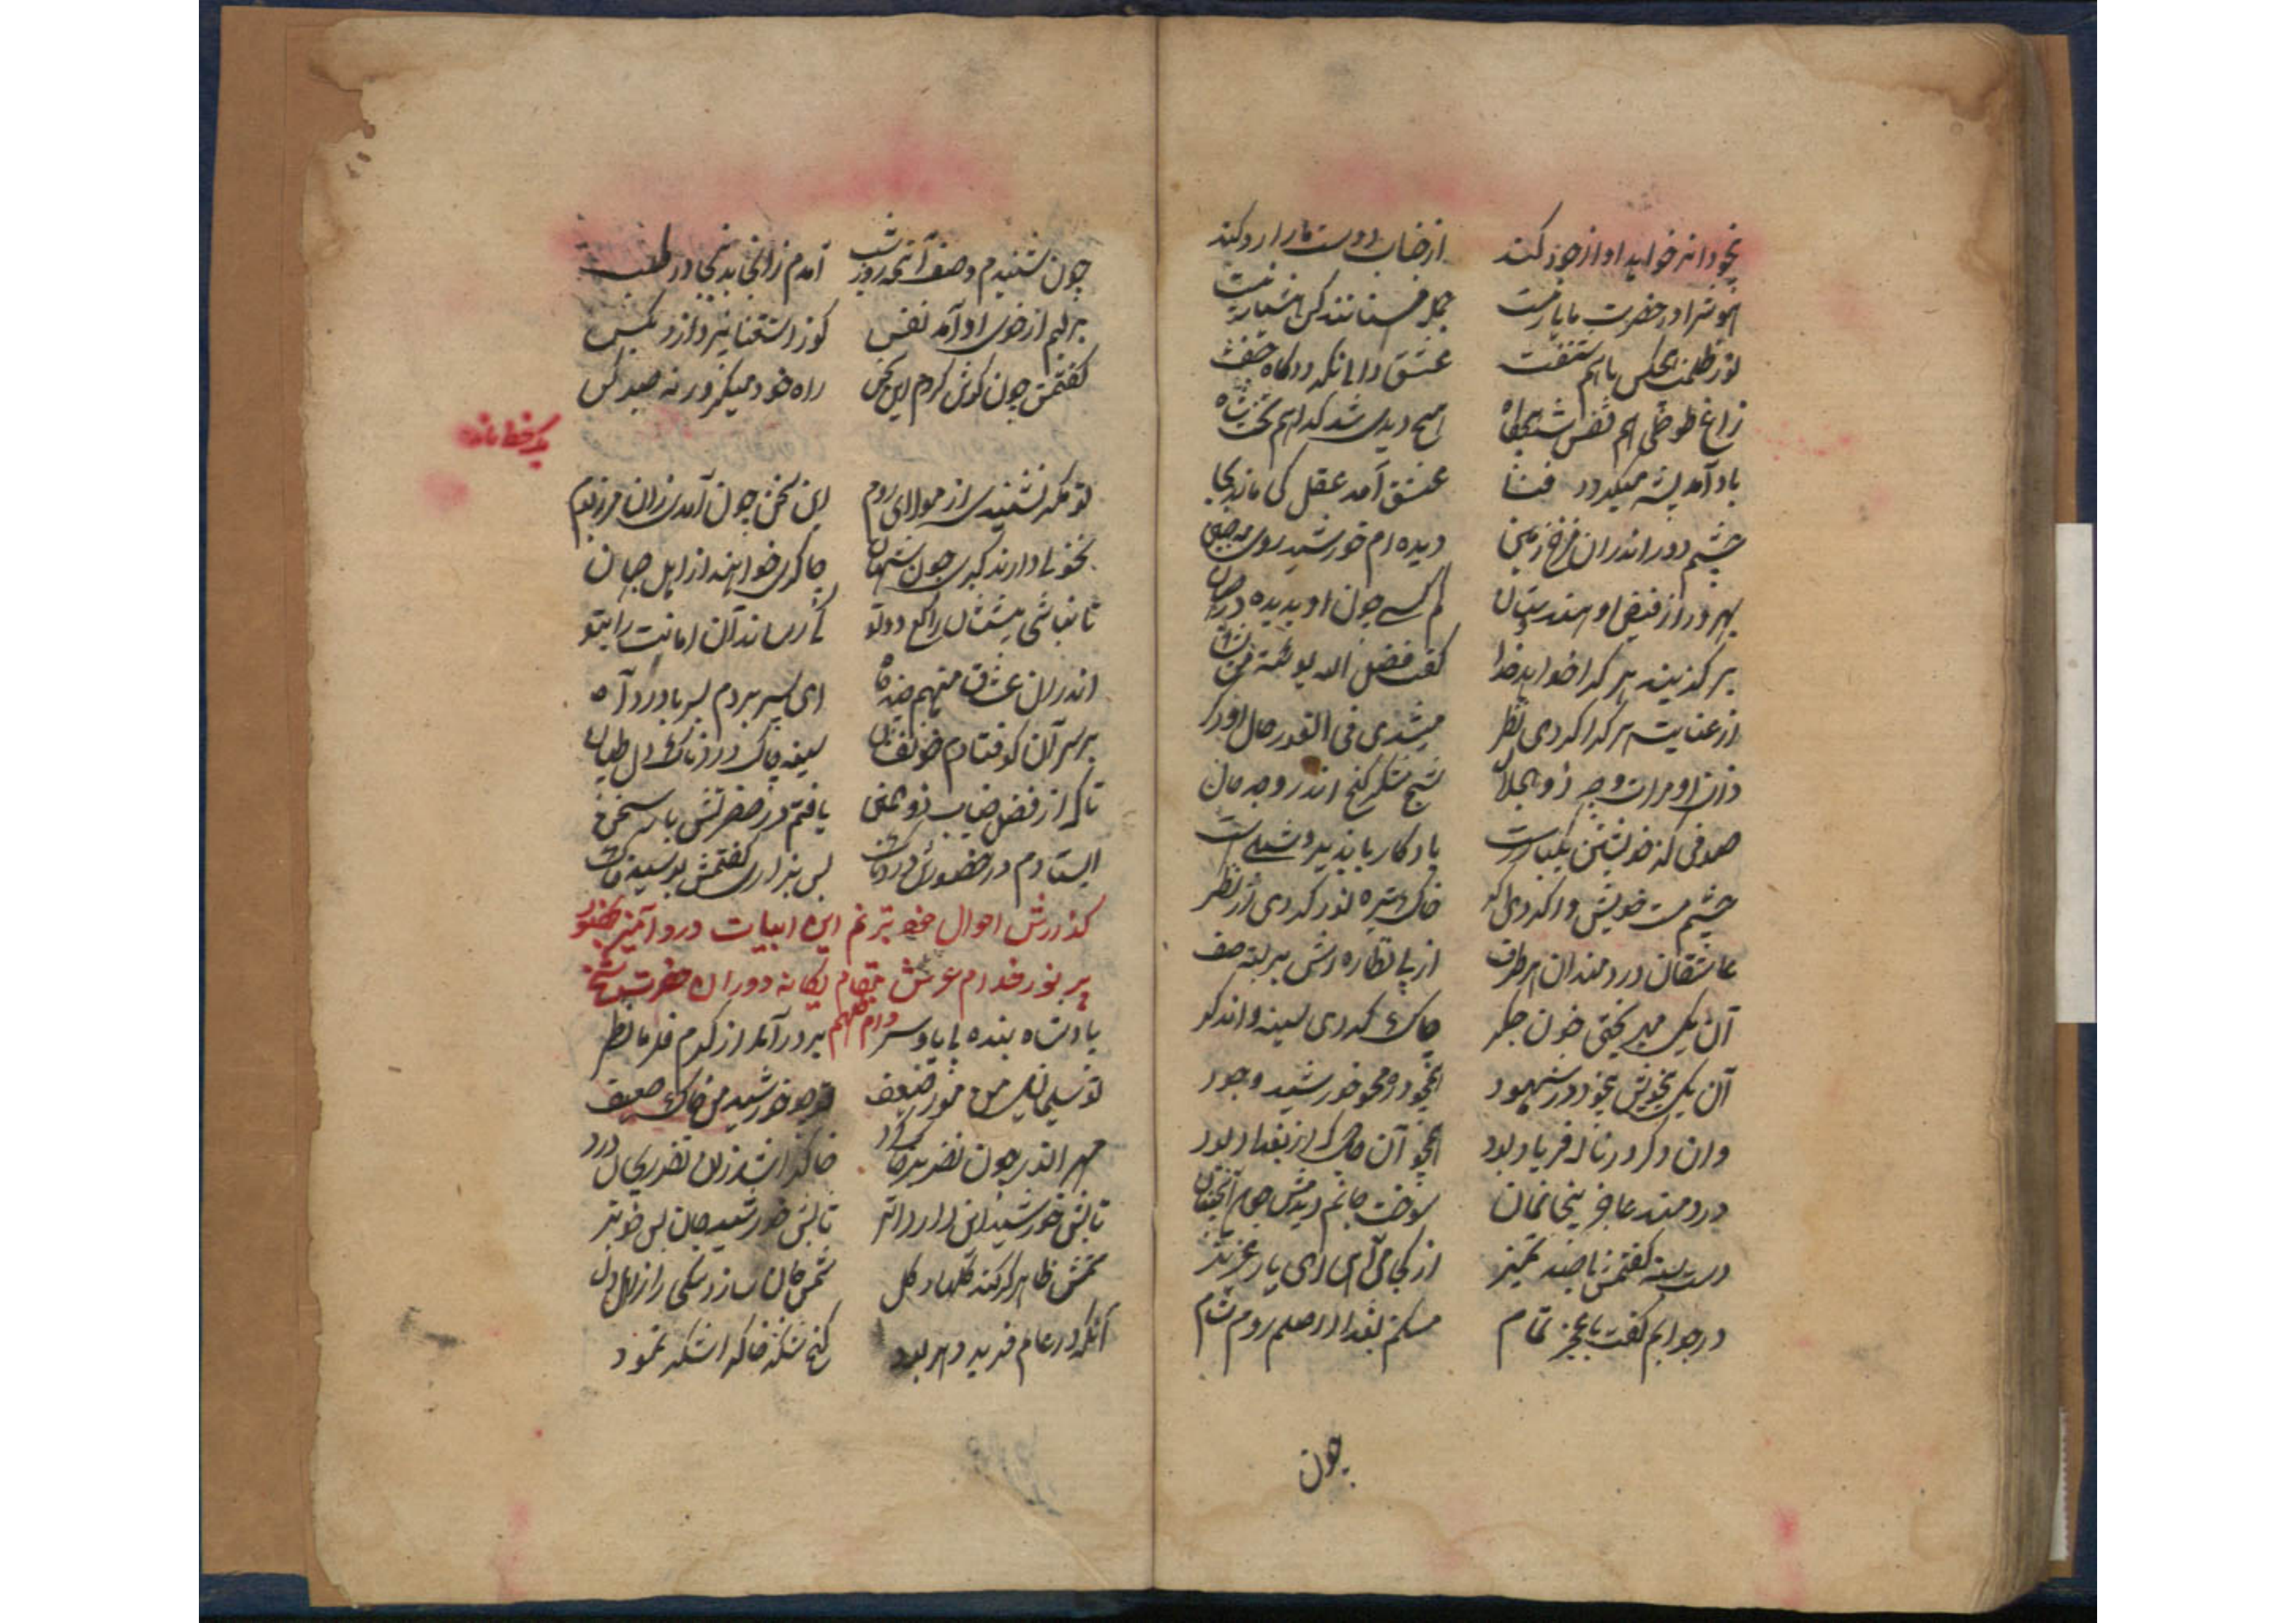 بیخود انرا خواند او از خود کند از جناب دوست مارا رد کند
هوش را در حضرت ما یار نیست جمله مستانند کس هشیار نیست
نور ظلمت هیچکس باهم نتفت عشق دامانکه درکاه خفت
زاغ طوطی هم قفس شد هیچگاه هیچ دیدی شد گدا هم تخت شاه
باد آمد پشه میگردد فنا عشق آمد عقل کی ماند بجا
چشم دور اندران فرخ زمین دیده ام خورشید روی مه جبین
بهره ور از فیض او هندوستان کم کسی چون او بدیده در جهان
بر گزیند هر کرا خواهد خدا گفت فضل الله یوتیه من یشا
از عنایت هر کرا کردی نظر میشدی فی الفور حال او دگر
ذات او مرات وجه ذو الجلال شیخ شکر گنج اندر وجد حال
صوفی کز خویشتن یکبار رست یادگار بایزید و شبلی است
چشم مست خویش وا کردی اگر خاک تیره نور کردی از نظر
عاشقان دردمندان هر طرف از پی نظاره اش بر بسته صف
آن یکی میریختی خون جگر چاک کردی سینه و اندکر
آن یکی بیخویش بیخود در شهود بیخود و محو خورشید وجود
وان دگر در ناله فریاد بود همچو آن خاک از بغداد بود
دردمند عاجز بیخانمان سوخت جانم دیدمش چون آنچنان
دست بسته گفتمش با صد تمیز از کجا می آئی ای یار عزیز
در جوابم گفت با عجز تمام مسکنم بغداد اصلم روم شام
چون
چون شنیدم وصف آن مه روز شب آمدم زانجا بدینجا در طلب
بر لبم از خوی او آمد نفس کو ز استغنا نپردازد بکس
گفتمش چون گوش کردم این سخن راه خود میگیر ورنه صبر کن
یک خط مانده
تو مگر نشنیدی از مولای روم این سخن چون آمدی زان مرز بوم
نخوتی دارند کبری چون شهان چاکری خواهند از اهل جهان
تا نباشی پیششان راکع دو تو کی رساند آن امانت را بتو
اندران عشاق منهم چند گاه ای بسر بردم بسر با درد آه
بر سر آن کو فتادم خونفشان سینه چاک دردناک دل طپان
تا که از فضل جناب ذو المنن یافتم در حضرتش یارای سخن
ایستادم در حضورش دردناک پس بزاری گفتمش بوسیده خاک
گذارش احوال خود بترنم این ابیات درد آمیز بحضور
پر نور خدام عرش مقام یگانه دوران حضرت شیخ
دام ظلهم
پادشاه بنده بی پا و سر بر در آمد از کرم فرما نظر
تو سلیمانی من مور ضعیف تو چو خورشید من خاک ضعیف
مهر انور چون نظر بر خاک کرد خاک را شد زان نظر بیحال درد
تابش خورشید این دارد اثر تابش خورشید جان بس خوبتر
شمش ظاهر گر کند گلها ز گل شمس جان سازد یکی راز دل
آنکه در عالم فرید دهر بود گنج شکر خاک را شکر نمود